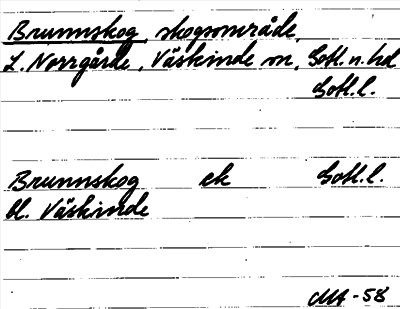 Brunnskog, skogsområde,
L. Norrgårde, Väskinde sn, Gotl. n. hd
Gotl. l.
Brunnskog ek Gotl. l.
bl. Väskinde
MA-58